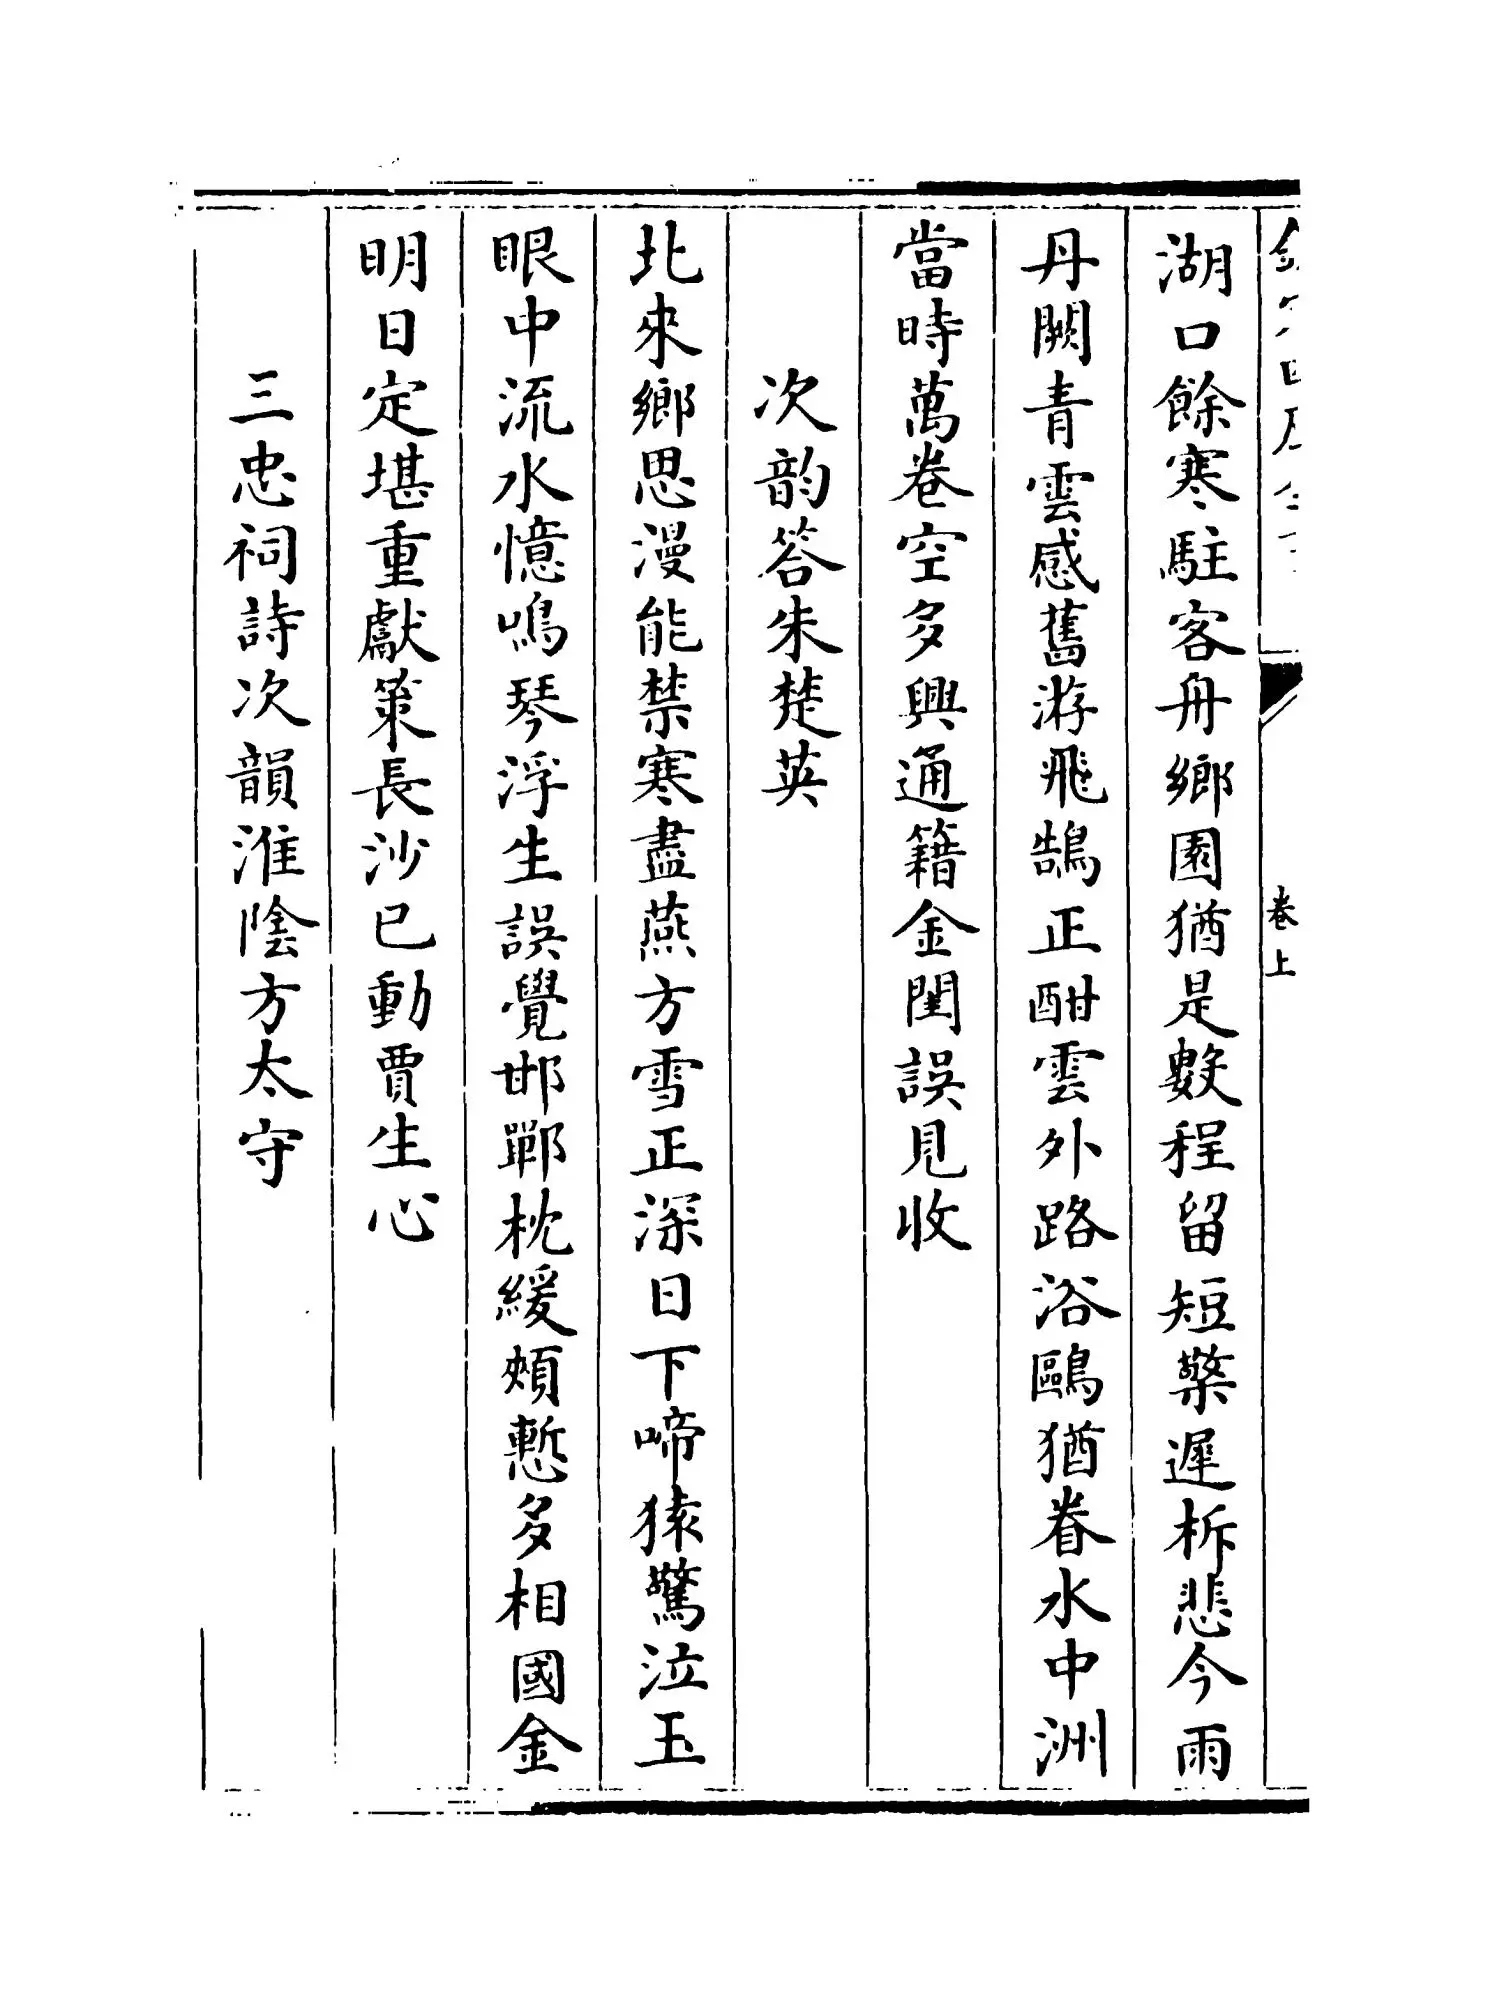 湖口餘寒駐客舟鄉園猶是數程留短檠遲柝悲今雨
丹闕青雲感舊游飛鵠正酣雲外路浴鷗猶眷水中洲
當時萬卷空多興通籍金閨誤見收
次韵答朱楚英
北來鄉思漫能禁寒盡燕方雪正深日下啼猿驚泣玉
眼中流水憶鳴琴浮生誤覺邯鄲枕緩頰慙多相國金
明日定堪重獻策長沙已動賈生心
三忠祠詩次韻淮陰方太守
卷上